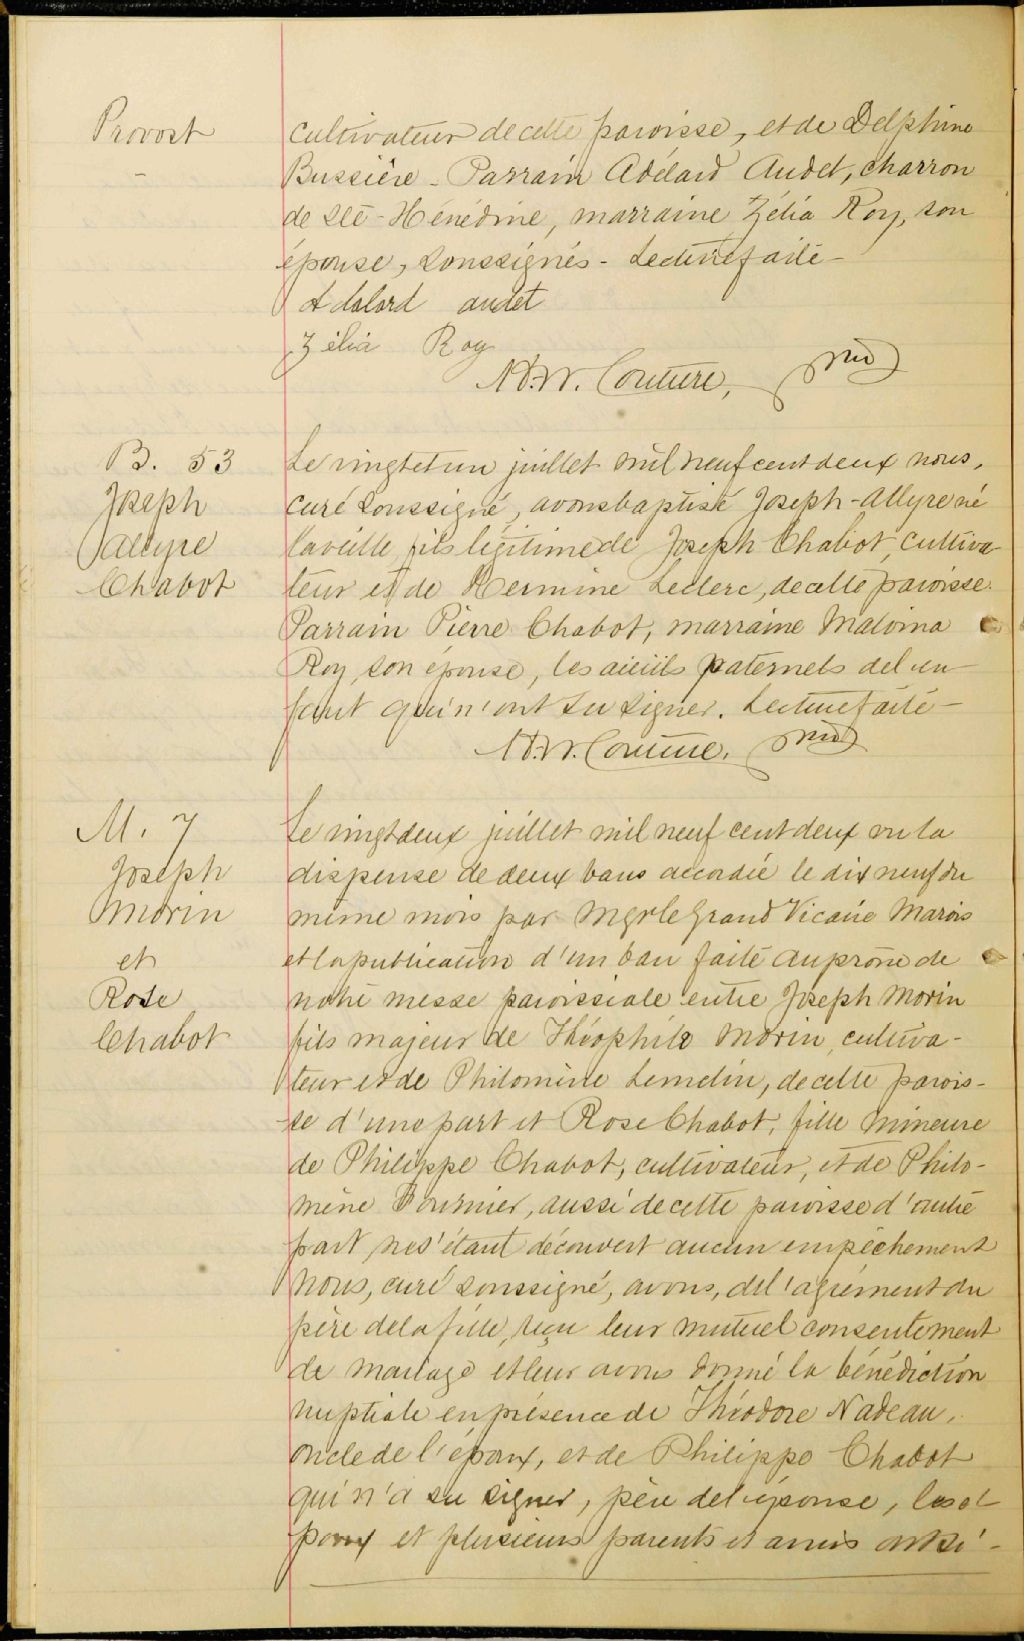 Provost
cultivateur de cette paroisse, et de Delphine
Bussière - Parrain Adélard Audet, charron
de Ste-Hénédine, marraine Zélia Roy, son
épouse, soussignés - Lecture faite -
Adalard audet
Zélia Roy
Ad. W. Couture, Ptre
B. 53
Joseph
Allyre
Chabot
Le vingt et un juillet mil neuf cent deux nous,
curé soussigné, avons baptisé Joseph-Allyre né
la veille fils légitime de Joseph Chabot, cultiva-
teur et de Hermine Leclerc, de cette paroisse.
Parrain Pierre Chabot, marraine Malvina
Roy son épouse, les aïeuls paternels de l'en-
fant qui n'ont su signer. Lecture faite -
Ad. W. Couture. Ptre
M. 7
Joseph
Morin
et
Rose
Chabot
Le vingt deux juillet mil neuf cent deux vu la
dispense de deux bans accordée le dix neuf du
même mois par Mgr le Grand Vicaire Marois
et la publication d'un ban faite au prône de
notre messe paroissiale entre Joseph Morin
fils majeur de Théophile Morin, cultiva-
teur et de Philomène Lemelin, de cette parois-
se d'une part et Rose Chabot, fille mineure
de Philippe Chabot, cultivateur, et de Philo-
mène Fournier, aussi de cette paroisse d'autre
part, ne s'étant découvert aucun empêchement
nous, curé soussigné, avons, de l'agrément du
père de la fille, reçu leur mutuel consentement
de mariage et leur avons donné la bénédiction
nuptiale en présence de Théodore Nadeau,
oncle de l'époux, et de Philippe Chabot
qui n'a su signer, père de l'épouse, les é-
poux et plusieurs parents et amis ont si-